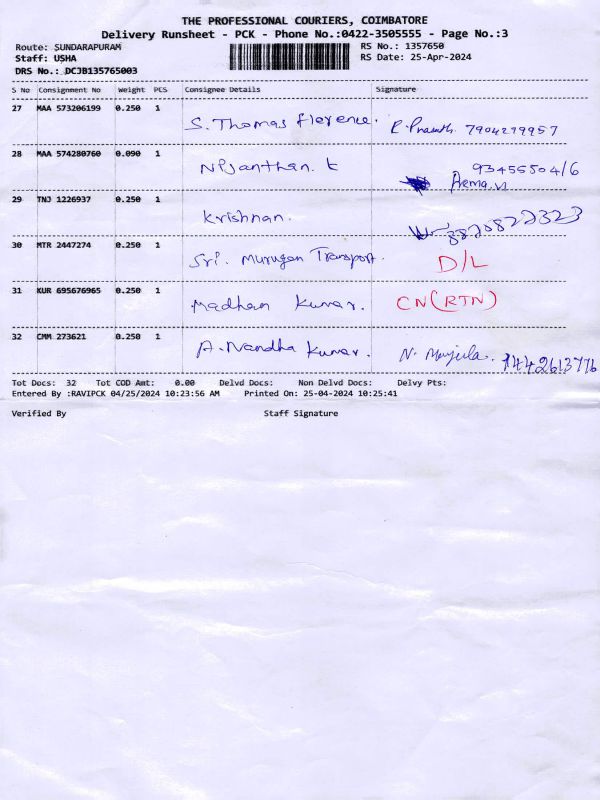 THE PROFESSIONAL COURIERS, COIMBATORE
Delivery Runsheet - PCK - Phone No.:0422-3505555 - Page No.:3
Route: SUNDARAPURAM RS No.: 1357650
Staff: USHA RS Date: 25-Apr-2024
DRS No.: DCJB135765003
S No Consignment No Weight PCS Consignee Details Signature
27 MAA 573206199 0.250 1 S. Thomas florence. 7904279957
28 MAA 574280760 0.090 1 t 93455504/6
Prema.
29 TNJ 1226937 0.250 1 Krishnan. 8820822323
30 MTR 2447274 0.250 1 Sri. Murugan Transport. D/L
31 KUR 695676965 0.250 1 Madhan Kumar. CN(RTN)
32 CMM 273621 0.250 1 A. Nandha Kumar. N. Manjula.
Tot Docs: 32 Tot COD Amt: 0.00 Delvd Docs: Non Delvd Docs: Delvy Pts:
Entered By :RAVIPCK 04/25/2024 10:23:56 AM Printed On: 25-04-2024 10:25:41
Verified By Staff Signature